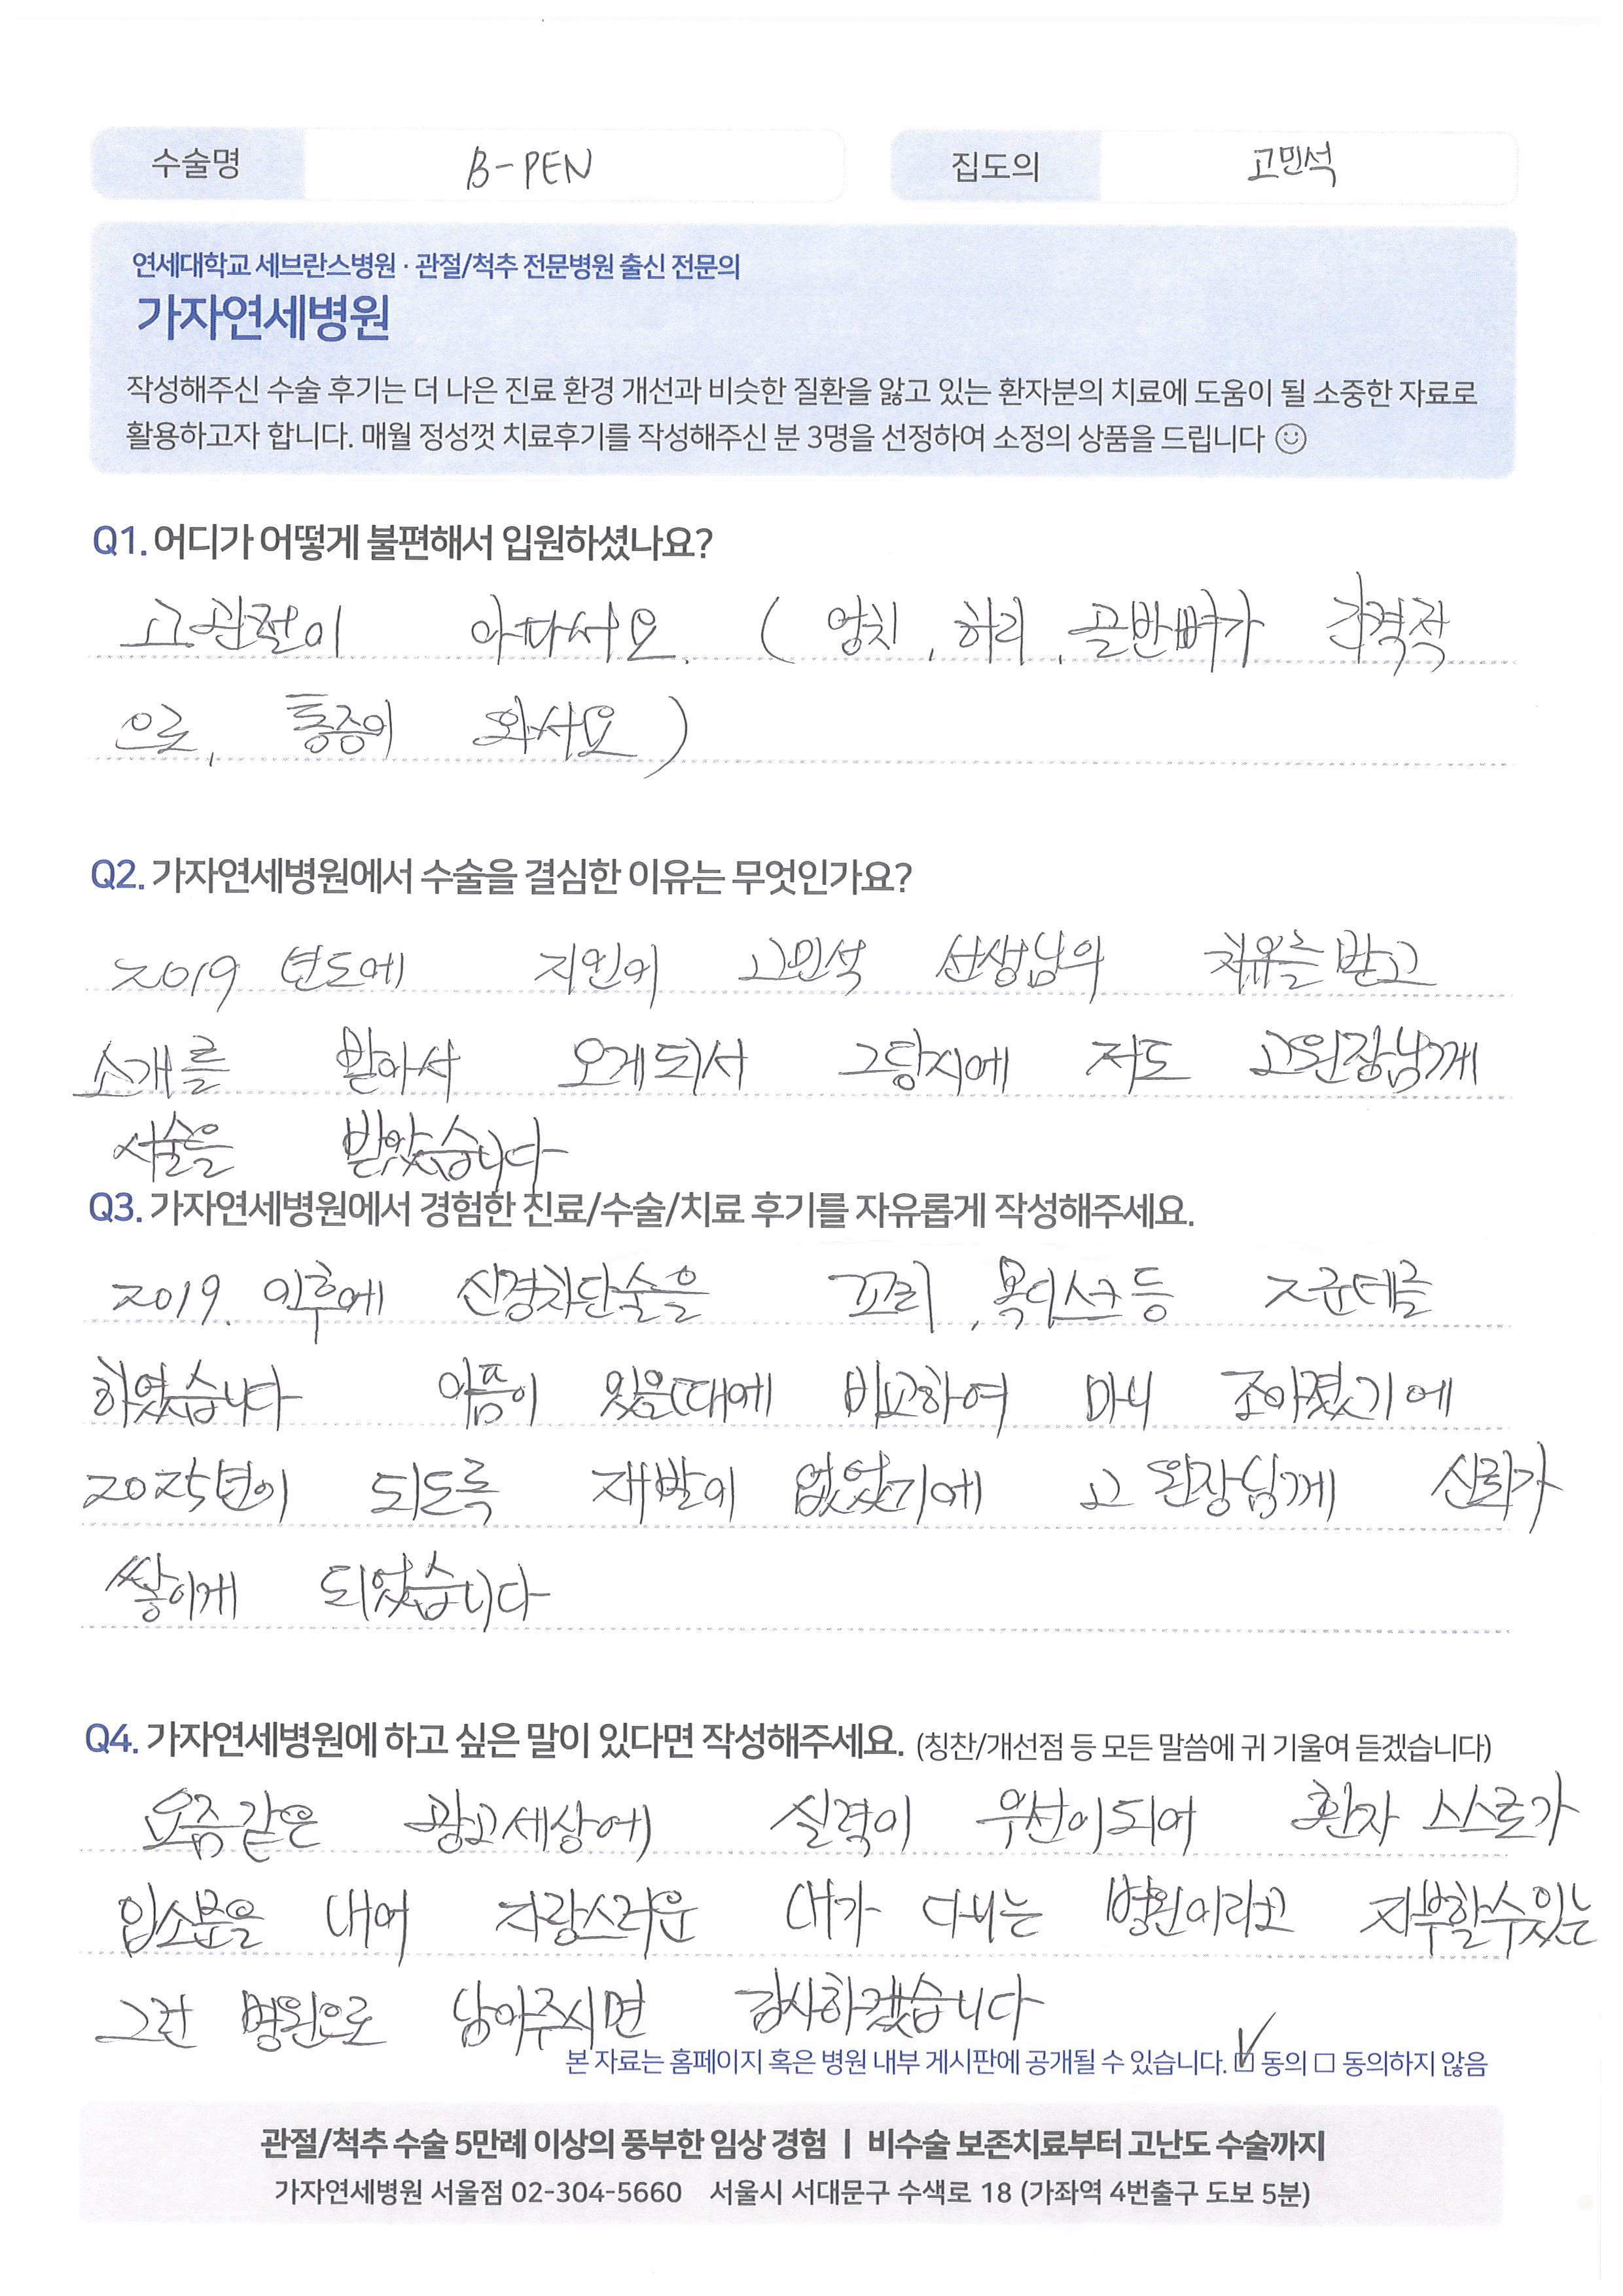 수술명 B-PEN 집도의 고민석
연세대학교 세브란스병원 · 관절/척추 전문병원 출신 전문의
가자연세병원
작성해주신 수술 후기는 더 나은 진료 환경 개선과 비슷한 질환을 앓고 있는 환자분의 치료에 도움이 될 소중한 자료로
활용하고자 합니다. 매월 정성껏 치료후기를 작성해주신 분 3명을 선정하여 소정의 상품을 드립니다 ☺
Q1. 어디가 어떻게 불편해서 입원하셨나요?
고관절이 아파서요. ( 엉치, 허리, 골반뼈가 간격적
으로, 통증이 와서요 )
Q2. 가자연세병원에서 수술을 결심한 이유는 무엇인가요?
2019 년도에 지인이 고민석 선생님의 치유를 받고
소개를 받아서 오게되서 그랑지에 저도 고원장님께
서술을 받았습니다
Q3. 가자연세병원에서 경험한 진료/수술/치료 후기를 자유롭게 작성해주세요.
2019. 이후에 신경차단술을 꼬리, 목디스크등
하였습니다 아픔이 있을때에 비교하여 마니 조아졌기에
2025년이 되도록 재발이 없었기에 고 원장님께 신뢰가
쌓이게 되었습니다
Q4. 가자연세병원에 하고 싶은 말이 있다면 작성해주세요. (칭찬/개선점 등 모든 말씀에 귀 기울여 듣겠습니다)
요즘같은 광고세상에 실력이 우선이되어 환자 스스로가
입소문을 내어 자랑스러운 내가 다니는 병원이라고 자부할수있는
그런 병원으로 남아주시면 감사하겠습니다
본 자료는 홈페이지 혹은 병원 내부 게시판에 공개될 수 있습니다. ☑ 동의 ☐ 동의하지 않음
관절/척추 수술 5만례 이상의 풍부한 임상 경험 | 비수술 보존치료부터 고난도 수술까지
가자연세병원 서울점 02-304-5660 서울시 서대문구 수색로 18 (가좌역 4번출구 도보 5분)